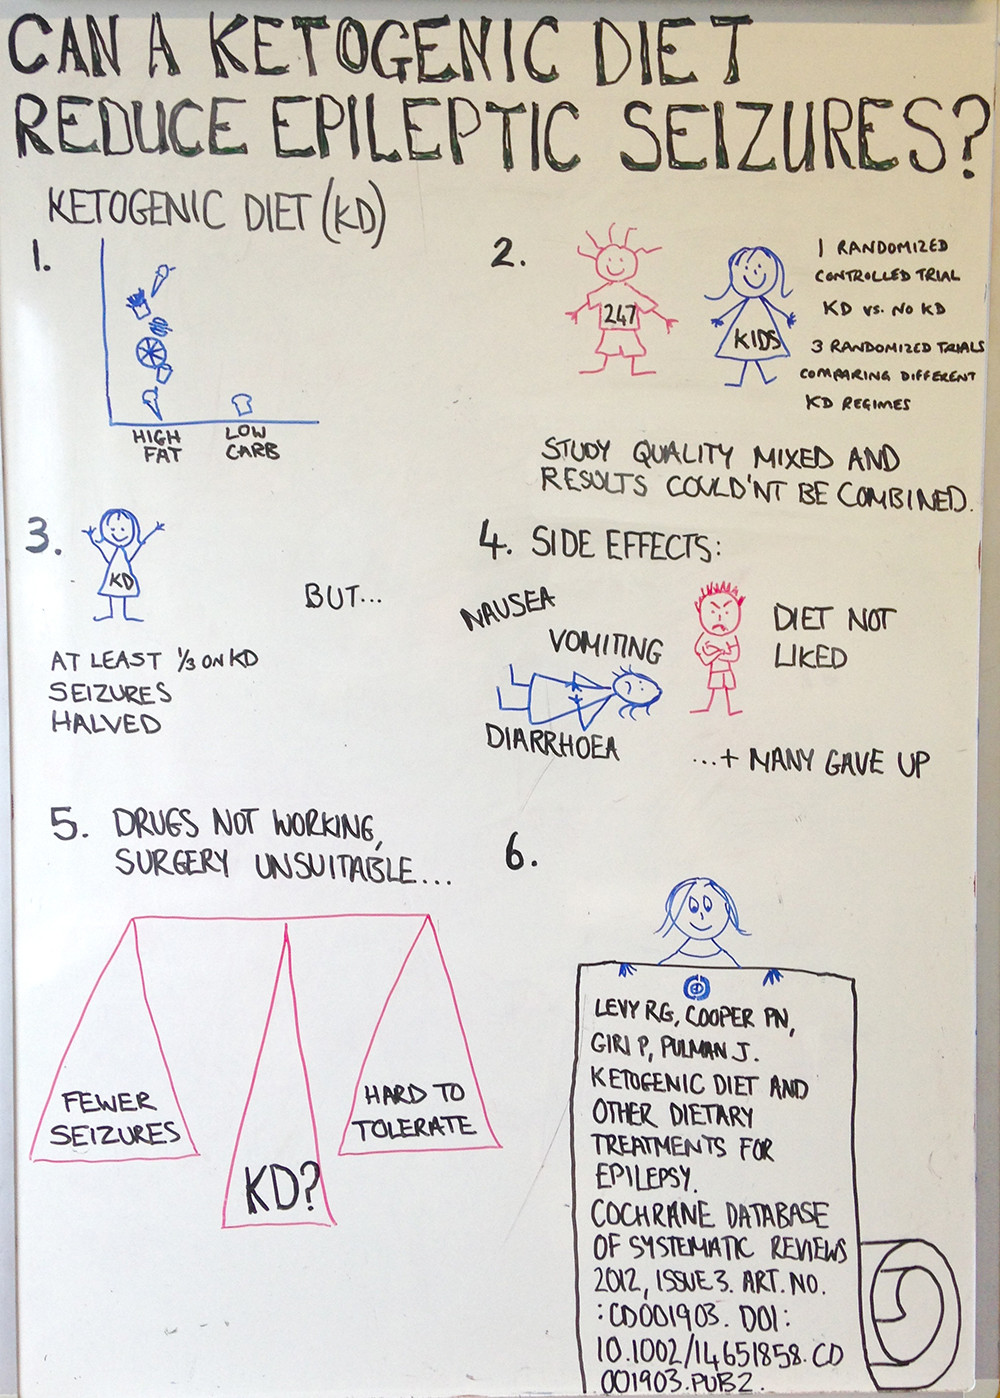 CAN A KETOGENIC DIET
REDUCE EPILEPTIC SEIZURES?
KETOGENIC DIET (KD)
1.
HIGH
FAT
LOW
CARB
2.
247
KIDS
1 RANDOMIZED
CONTROLLED TRIAL
KD VS. NO KD
3 RANDOMIZED TRIALS
COMPARING DIFFERENT
KD REGIMES
STUDY QUALITY MIXED AND
RESULTS COULD'NT BE COMBINED.
3.
KD
AT LEAST 1/3 ON KD
SEIZURES
HALVED
BUT...
4. SIDE EFFECTS:
NAUSEA
VOMITING
DIARRHOEA
DIET NOT
LIKED
...+ MANY GAVE UP
5. DRUGS NOT WORKING,
SURGERY UNSUITABLE...
FEWER
SEIZURES
KD?
HARD TO
TOLERATE
6.
LEVY RG, COOPER PN,
GIRI P, PULMAN J.
KETOGENIC DIET AND
OTHER DIETARY
TREATMENTS FOR
EPILEPSY.
COCHRANE DATABASE
OF SYSTEMATIC REVIEWS
2012, ISSUE 3. ART. NO.
:CD001903. DOI:
10.1002/14651858.CD
001903.PUB2.